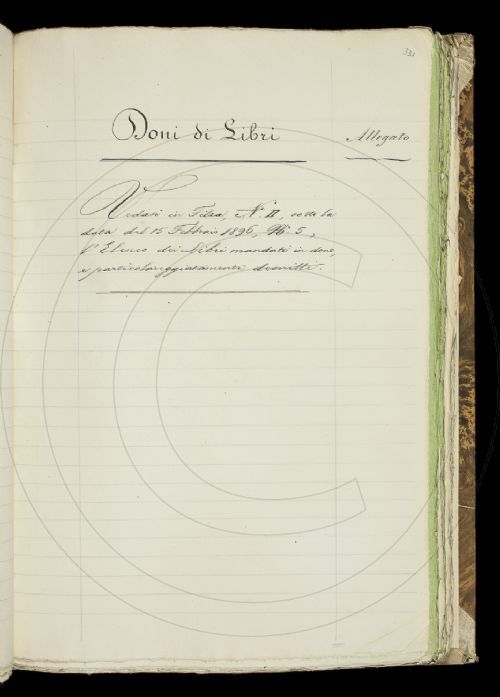 Doni di Libri
Allegato
Vedasi in Filza, e N.º II, sotto la
data del 15 Febbraio 1896, 5,
l'Elenco dei Libri mandati in dono,
e particolareggiatamente descritti.